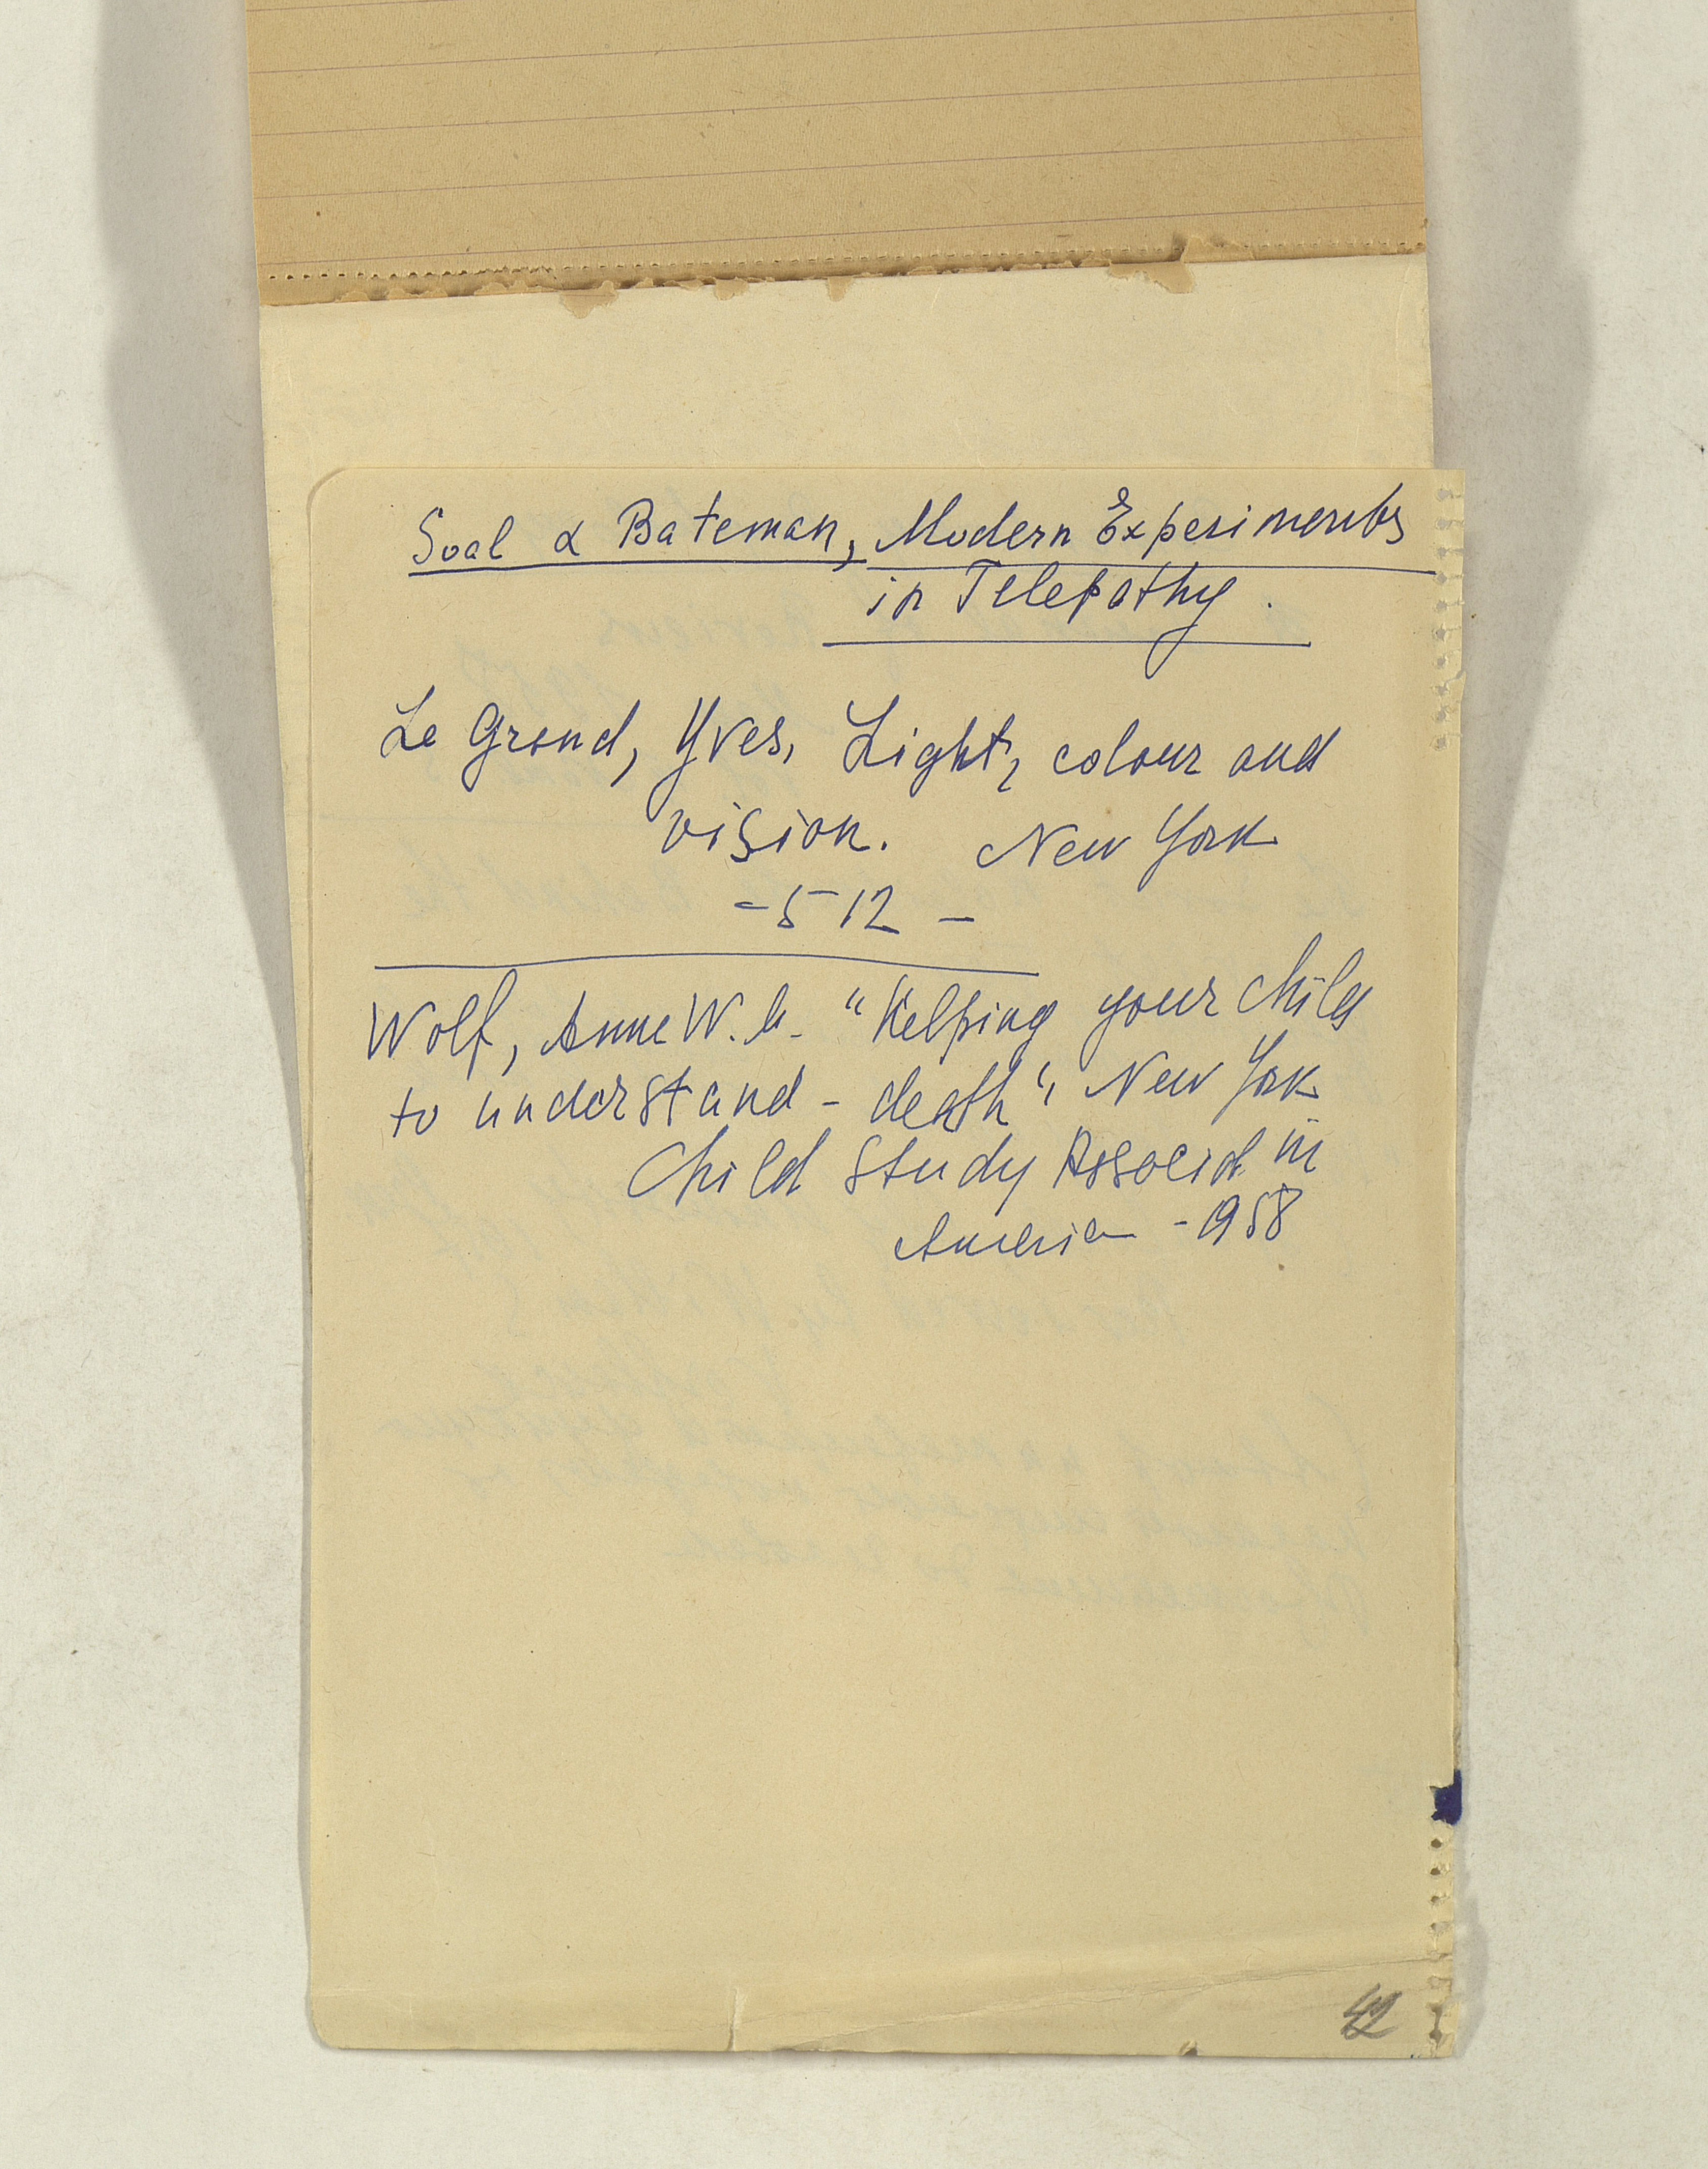 Soal & Bateman, Modern Experiments
in Telepathy.
Le Grand, Yves, Light, colour and
vision. New York
- 512 -
Wolf, Anne W. M. "Helping your child
to understand - death", New York
Child Study Associat in
America - 1958
42